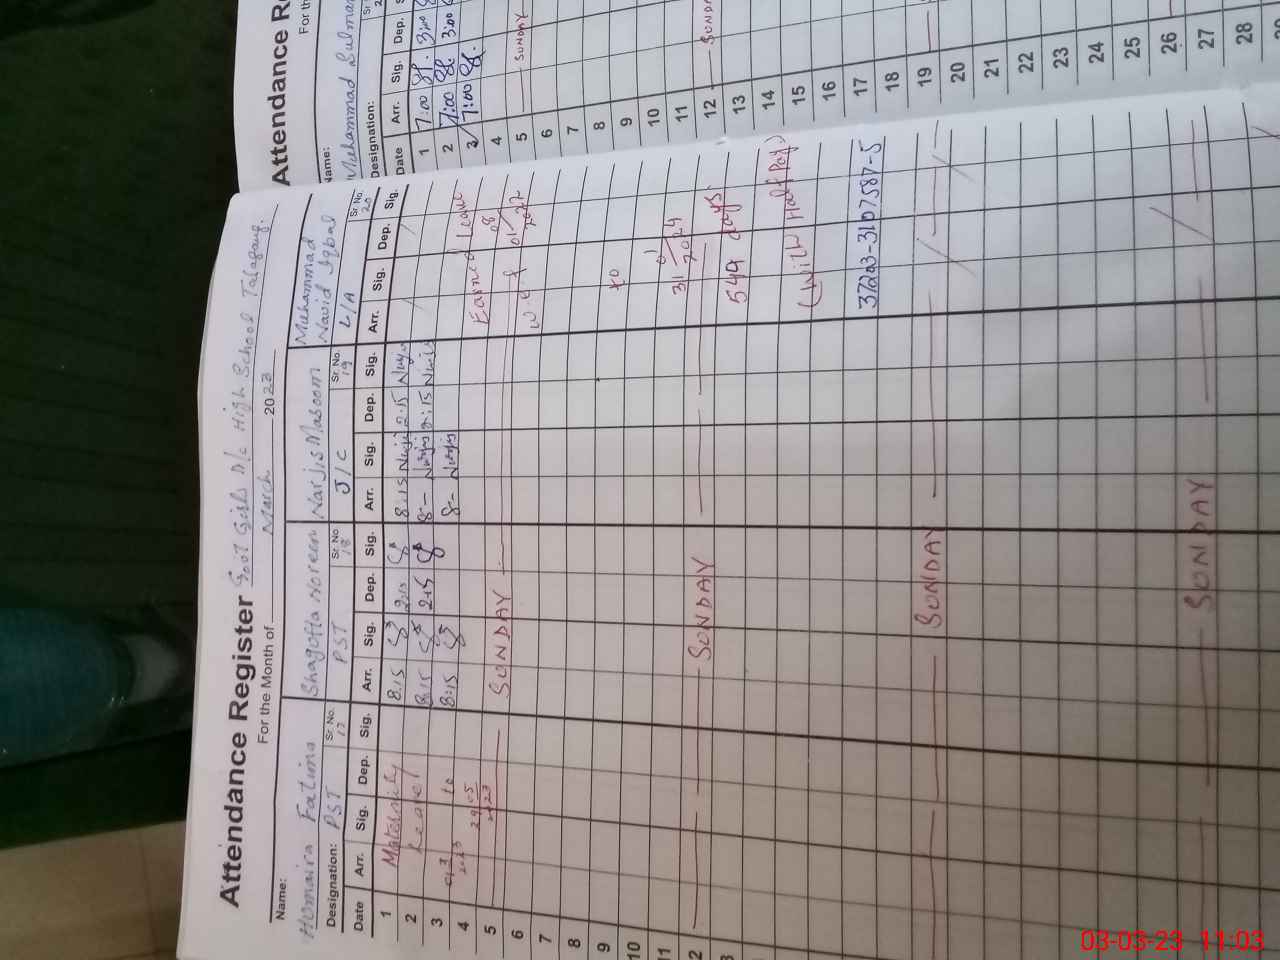 Attendance Register Govt Girls M/c High School Talagang.
For the Month of March 2023
Name: Homaira Fatima Shagofta Noreen Narjis Masoom Muhammad Navid Iqbal
Designation: PST Sr. No. 17 PST Sr. No. 18 J/C Sr. No. 19 L/A Sr. No. 20
Date Arr. Sig. Dep. Sig. Arr. Sig. Dep. Sig. Arr. Sig. Dep. Sig. Arr. Sig. Dep. Sig.
1 Maternity 8:15 2:15 8:15 2:15
2 Leave 8:15 2:15 8- 2:15
3 to 8:15 8- Narjis
4 2023 Earned Leave
5 SUNDAY w.e.f 01 2022
6
7
8
9 to
10
11 31 2024
12 SUNDAY
13 544 days.
(With Half Pay)
37203-3107587-5
SUNDAY
SUNDAY
Attendance Re
For th
Name: Muhammad Sulman
Designation:
Date Arr. Sig. Dep.
1 7:00 3:00
2 7:00 3:00
3 7:00
4
5 SUNDAY
6
7
8
9
10
11
12
13
14
15
16
17
18
19
20
21
22
23
24
25
26
27
28
03-03-23 11:03